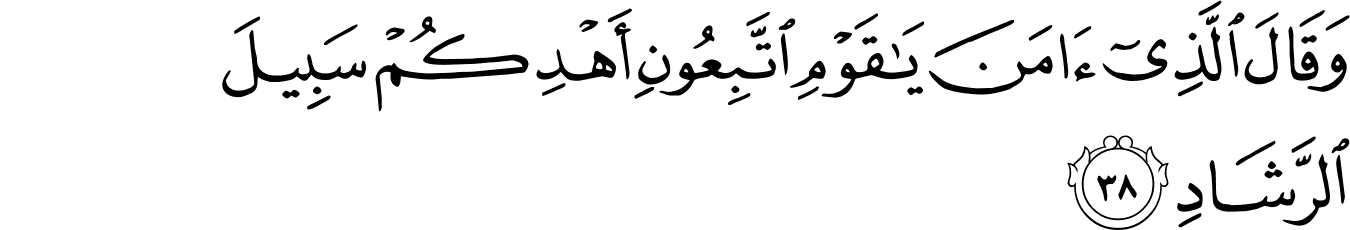 وَقَالَ ٱلَّذِىٓ ءَامَنَ يَـٰقَوْمِ ٱتَّبِعُونِ أَهْدِكُمْ سَبِيلَ
ٱلرَّشَادِ ٣٨